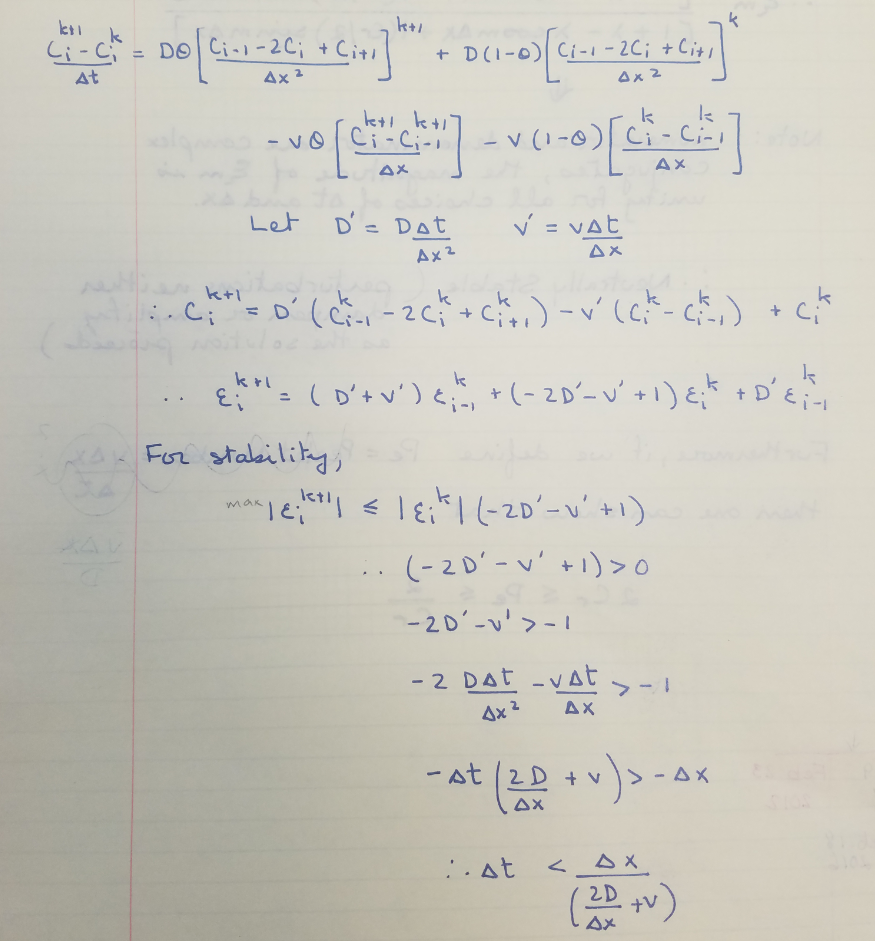 (C_i^{k+1} - C_i^k)/Δt = Dθ[(C_{i-1} - 2C_i + C_{i+1})/Δx²]^{k+1} + D(1-θ)[(C_{i-1} - 2C_i + C_{i+1})/Δx²]^k
- vθ[(C_i^{k+1} - C_{i-1}^{k+1})/Δx] - v(1-θ)[(C_i^k - C_{i-1}^k)/Δx]
Let D' = DΔt/Δx² v' = vΔt/Δx
∴ C_i^{k+1} = D'(C_{i-1}^k - 2C_i^k + C_{i+1}^k) - v'(C_i^k - C_{i-1}^k) + C_i^k
∴ ε_i^{k+1} = (D'+v')ε_{i-1}^k + (-2D'-v'+1)ε_i^k + D'ε_{i-1}^k
For stability,
max |ε_i^{k+1}| ≤ |ε_i^k|(-2D'-v'+1)
∴ (-2D'-v'+1) > 0
-2D'-v' > -1
-2 DΔt/Δx² - vΔt/Δx > -1
-Δt(2D/Δx + v) > -Δx
∴ Δt < Δx/(2D/Δx + v)